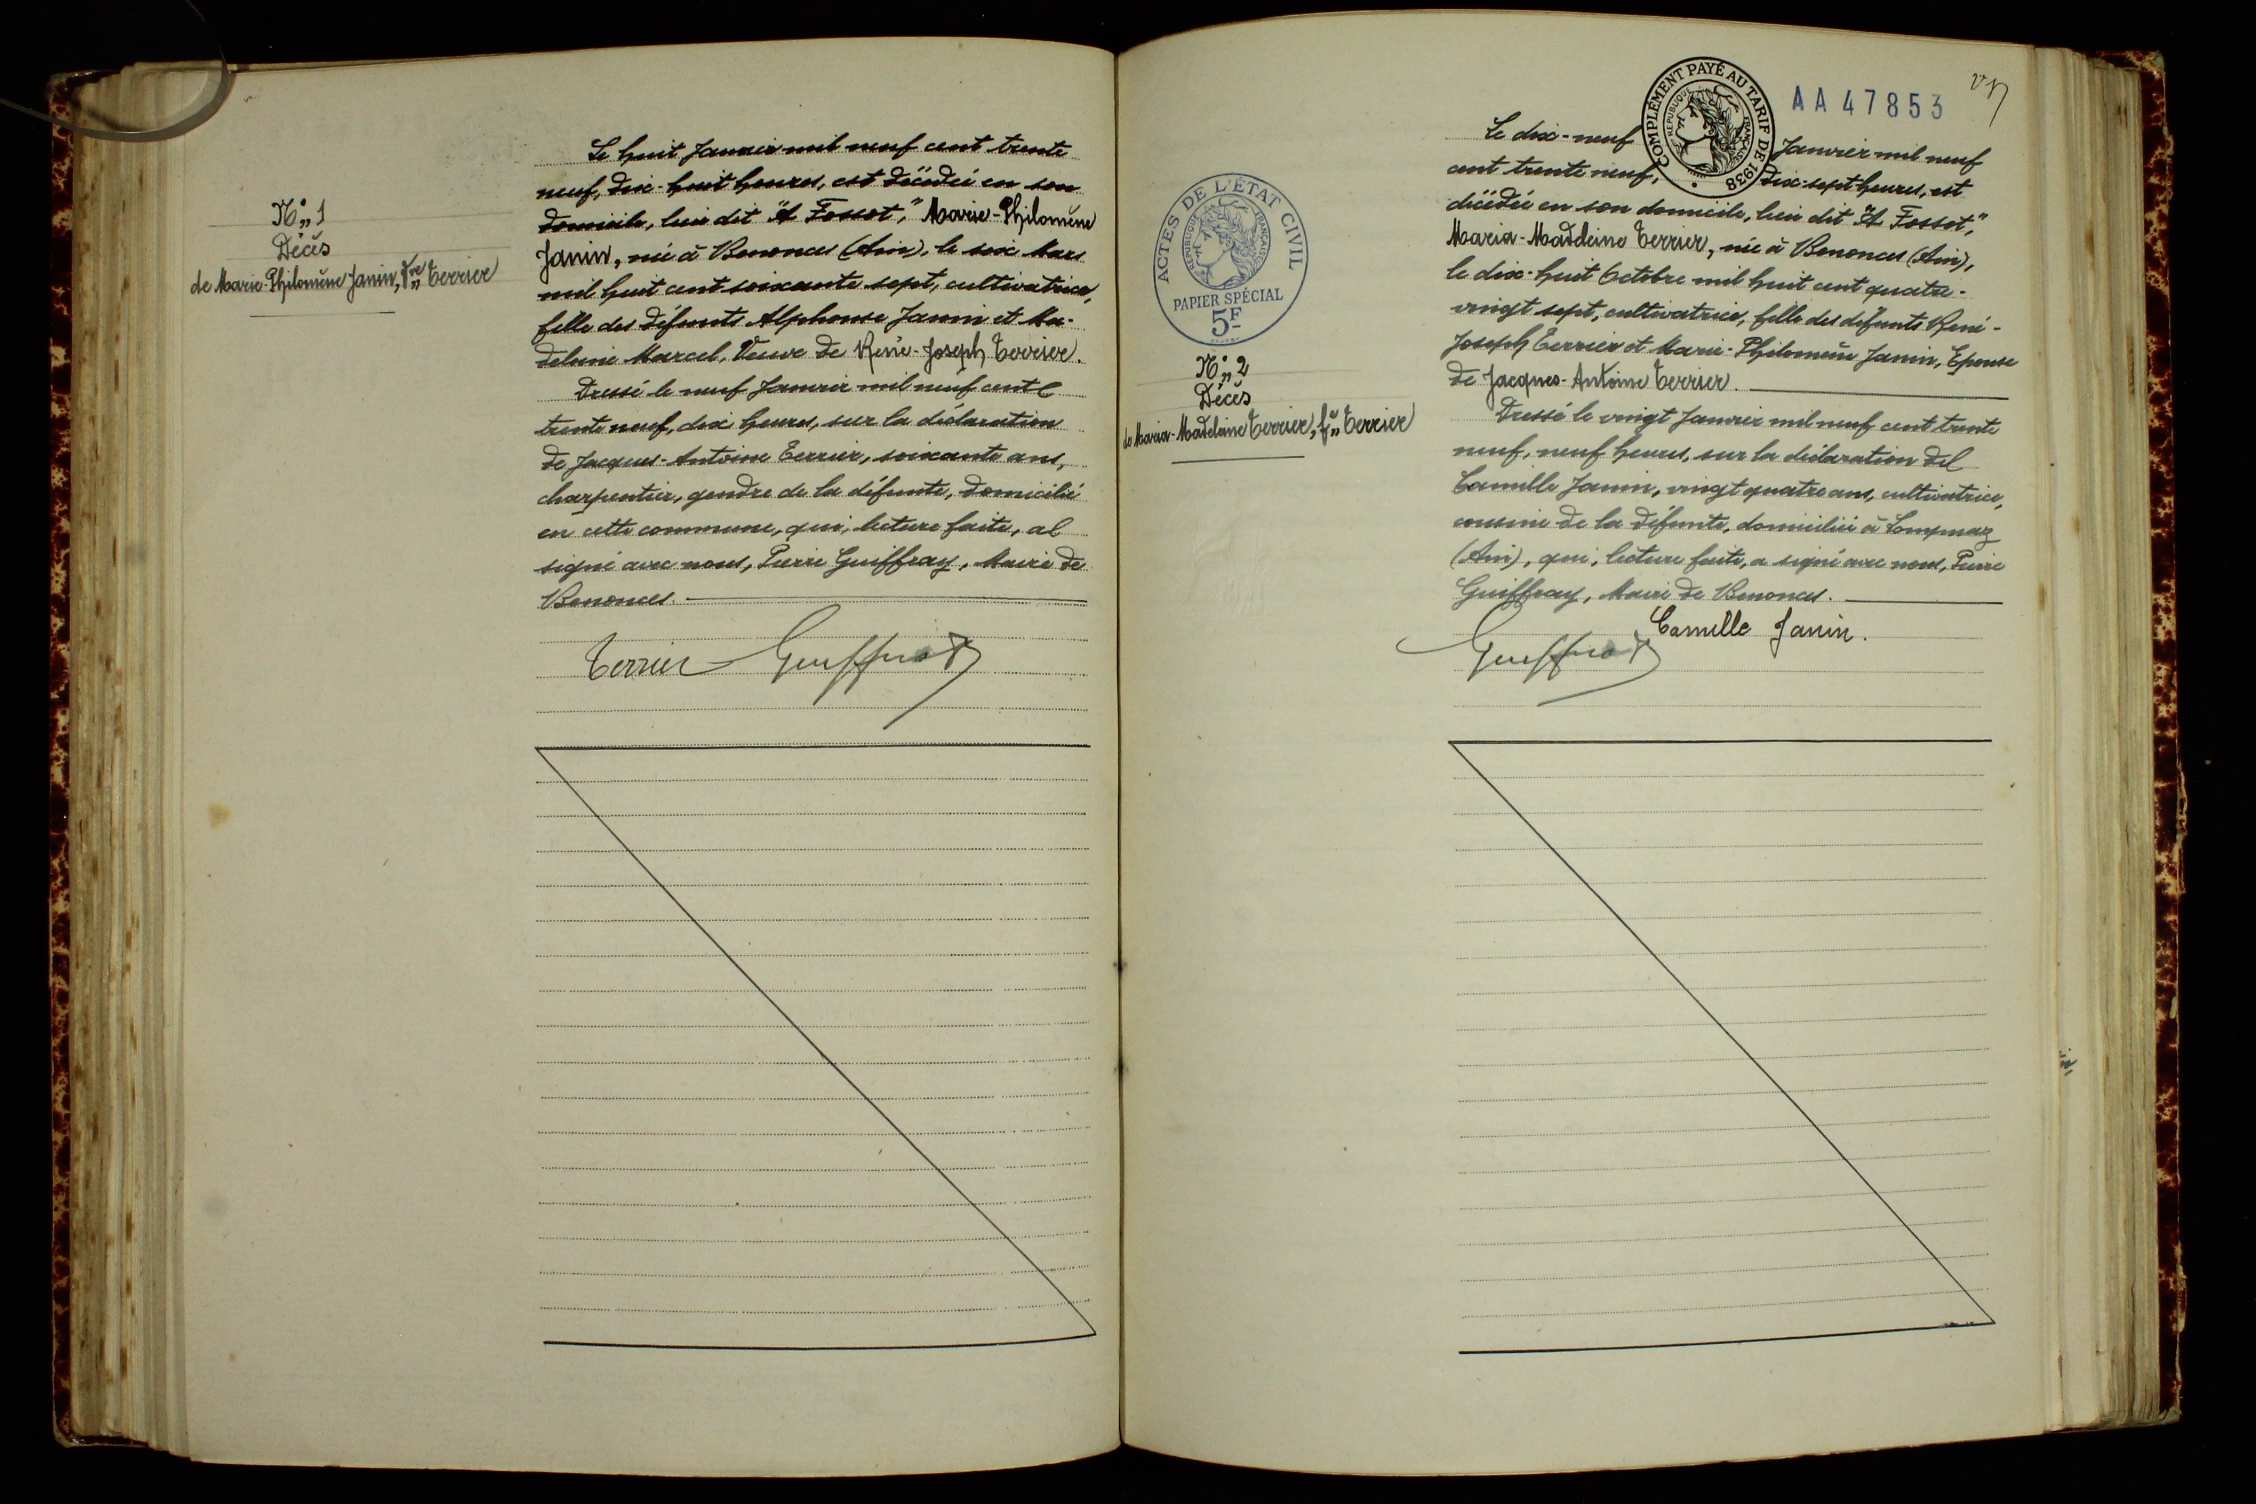 N° 1
Décès
de Marie-Philomène Janin, Vve Terrier
Le huit Janvier mil neuf cent trente
neuf, dix-huit heures, est décédée en son
domicile, lieu dit "A Fossot," Marie-Philomène
Janin, née à Benonces (Ain), le six Mars
mil huit cent soixante sept, cultivatrice,
fille des défunts Alphonse Janin et Ma-
deleine Marcel, Veuve de René-Joseph Terrier.
Dressé le neuf Janvier mil neuf cent
trente neuf, dix heures, sur la déclaration
de Jacques-Antoine Terrier, soixante ans,
charpentier, gendre de la défunte, domicilié
en cette commune, qui, lecture faite, a
signé avec nous, Pierre Guiffray, Maire de
Benonces.
Terrier Guiffray
AA 47853
COMPLÉMENT PAYÉ AU TARIF DE 1938
RÉPUBLIQUE FRANÇAISE
ACTES DE L'ÉTAT CIVIL
RÉPUBLIQUE FRANÇAISE
PAPIER SPÉCIAL
5F
N° 2
Décès
de Maria-Madeleine Terrier, fe Terrier
Le dix-neuf Janvier mil neuf
cent trente neuf, dix-sept heures, est
décédée en son domicile, lieu dit "A Fossot,"
Maria-Madeleine Terrier, née à Benonces (Ain),
le dix-huit Octobre mil huit cent quatre-
vingt sept, cultivatrice, fille des défunts René-
Joseph Terrier et Marie-Philomène Janin, Epouse
de Jacques-Antoine Terrier.
Dressé le vingt Janvier mil neuf cent trente
neuf, neuf heures, sur la déclaration de
Camille Janin, vingt quatre ans, cultivatrice,
cousine de la défunte, domiciliée à Lompnaz
(Ain), qui, lecture faite, a signé avec nous, Pierre
Guiffray, Maire de Benonces.
Camille Janin.
Guiffray